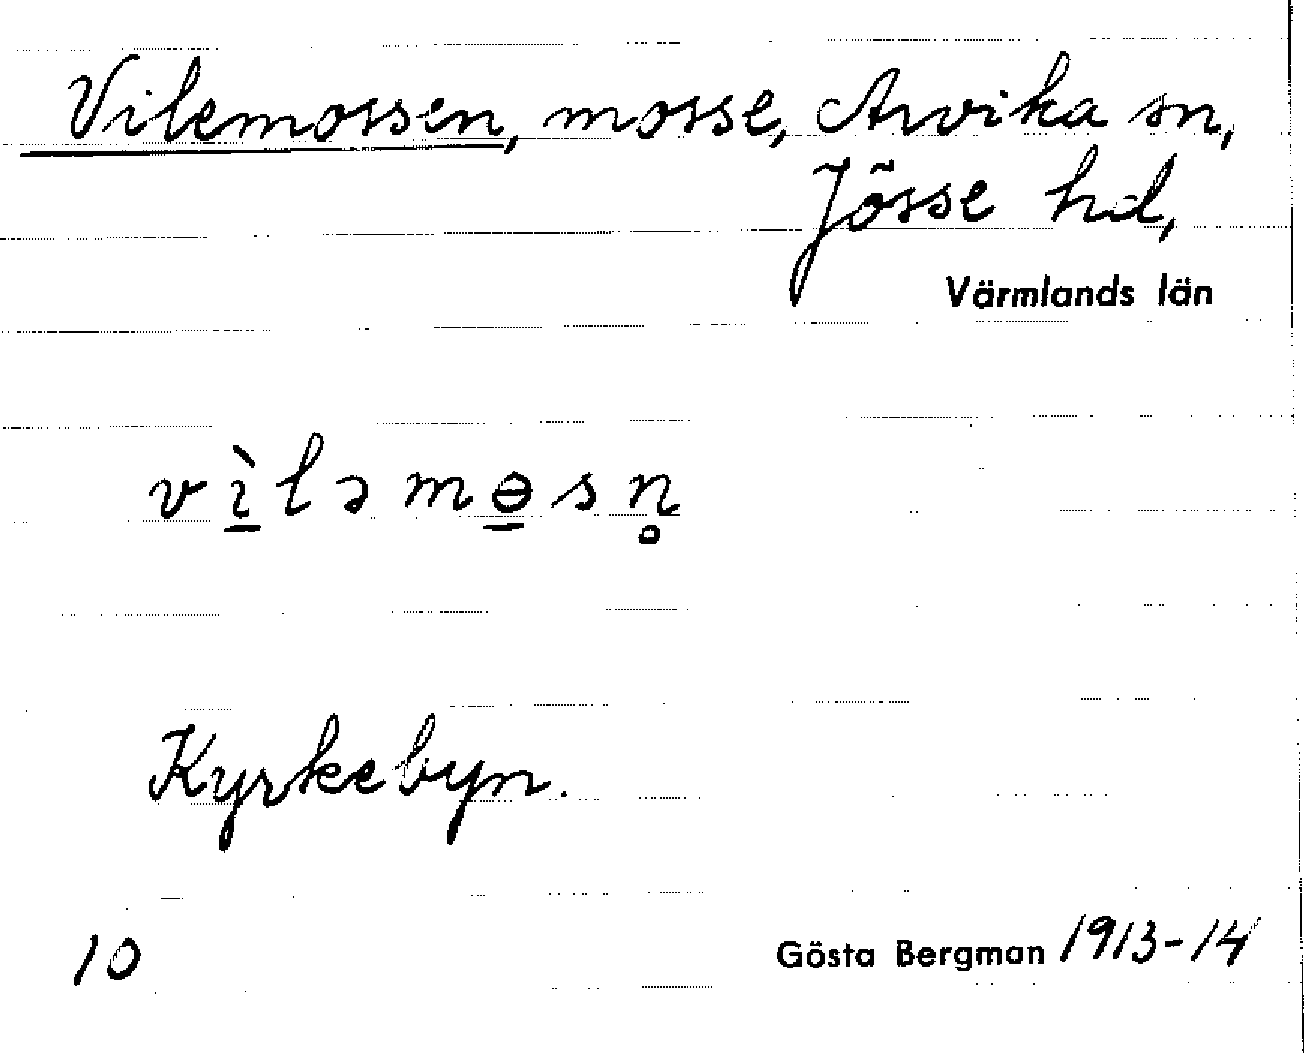 Vilemossen, mosse, Arvika sn,
Jösse hd,
Värmlands län
vı̱̀ləmɵ̱sn̥
Kyrkebyn.
10
Gösta Bergman 1913-14